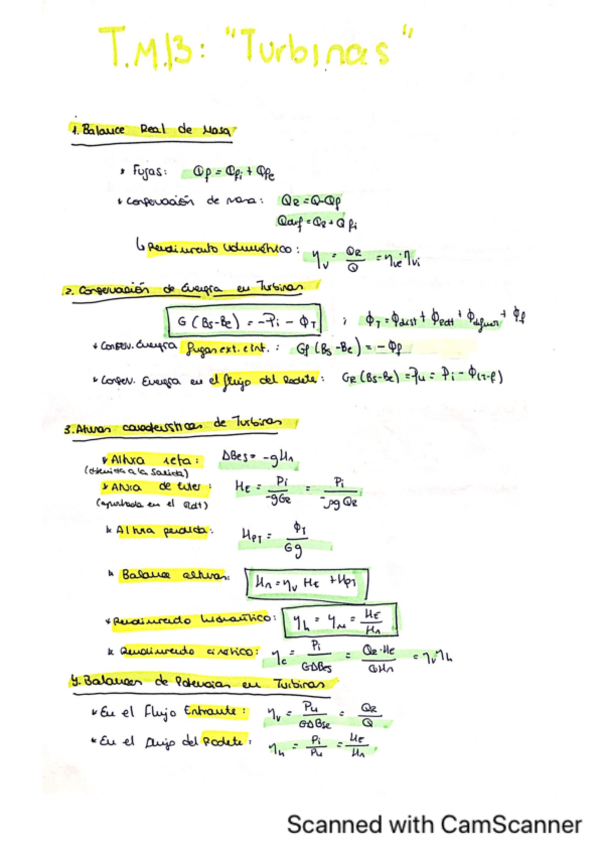 T.M.13: "Turbinas"
1. Balance Real de Masa
* Fugas: Qp = Qfi + Qfe
* Conservación de masa: QR = Q-Qp
Qasf = QR + Qfi
↳ Rendimiento volumétrico: ηv = QR/Q = ηve ηvi
2. Conservación de Energía en Turbinas
G (Bs-Be) = -Pi - ΦT ; ΦT = Φdist + Φrodt + Φdifusor + Φf
* Conserv. Energía fugas ext. e Int.: Gf (Bs-Be) = - Φf
* Conserv. Energía en el flujo del Rodete: GR (Bs-Be) = Pu = Pi - Φ(T-f)
3. Alturas características de Turbinas
* Altura neta: ΔBes = -gHn
(obtenida a la Salida)
* Altura de Euler: HE = Pi/-gGR = Pi/-ρgQR
(aportada en el Rdt)
* Altura perdida: HpT = ΦT/Gg
* Balance alturas: Hn = ηv HE + HpT
* Rendimiento hidráulico: ηh = ηm = HE/Hn
* Rendimiento cinético: ηc = Pi/GΔBes = QR·HE/QHn = ηvηh
4. Balances de Potencias en Turbinas
* En el Flujo Entrante: ηv = Pu/GΔBse = QR/Q
* En el flujo del Rodete: ηh = Pi/Pu = HE/Hn
Scanned with CamScanner